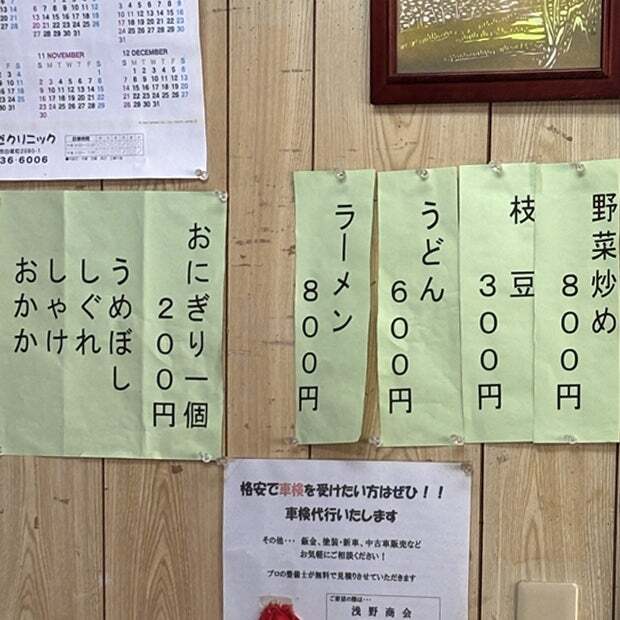 11 NOVEMBER
12 DECEMBER
クリニック
36-6006
野菜炒め
800円
枝豆
300円
うどん
600円
ラーメン
800円
おにぎり一個
200円
うめぼし
しぐれ
しゃけ
おかか
格安で車検を受けたい方はぜひ！！
車検代行いたします
その他・・・ 鈑金、塗装・新車、中古車販売など
お気軽にご相談ください！
プロの整備士が無料で見積りさせていただきます
ご用命の際は・・・
浅野商会